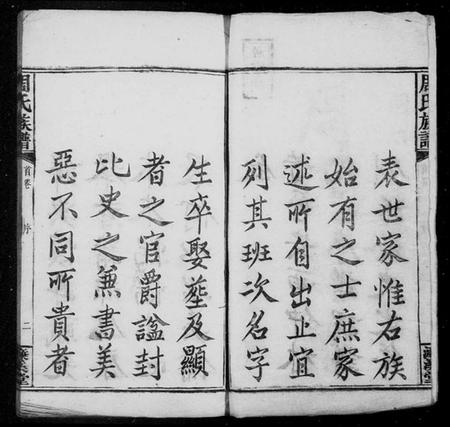 周氏族譜
表世家惟右族
始有之士庶家
述所自出止宜
列其班次名字
生卒娶葬及顯
者之官爵諡封
比史之兼書美
惡不同所貴者
周氏族譜
首卷
序
二